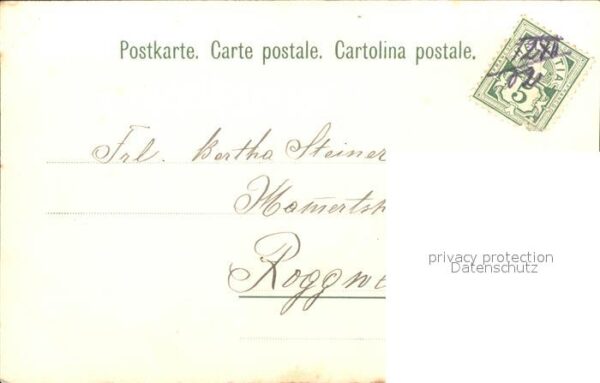 Postkarte. Carte postale. Cartolina postale.
5
Frl. Bertha Steiner
Roggw
privacy protection
Datenschutz